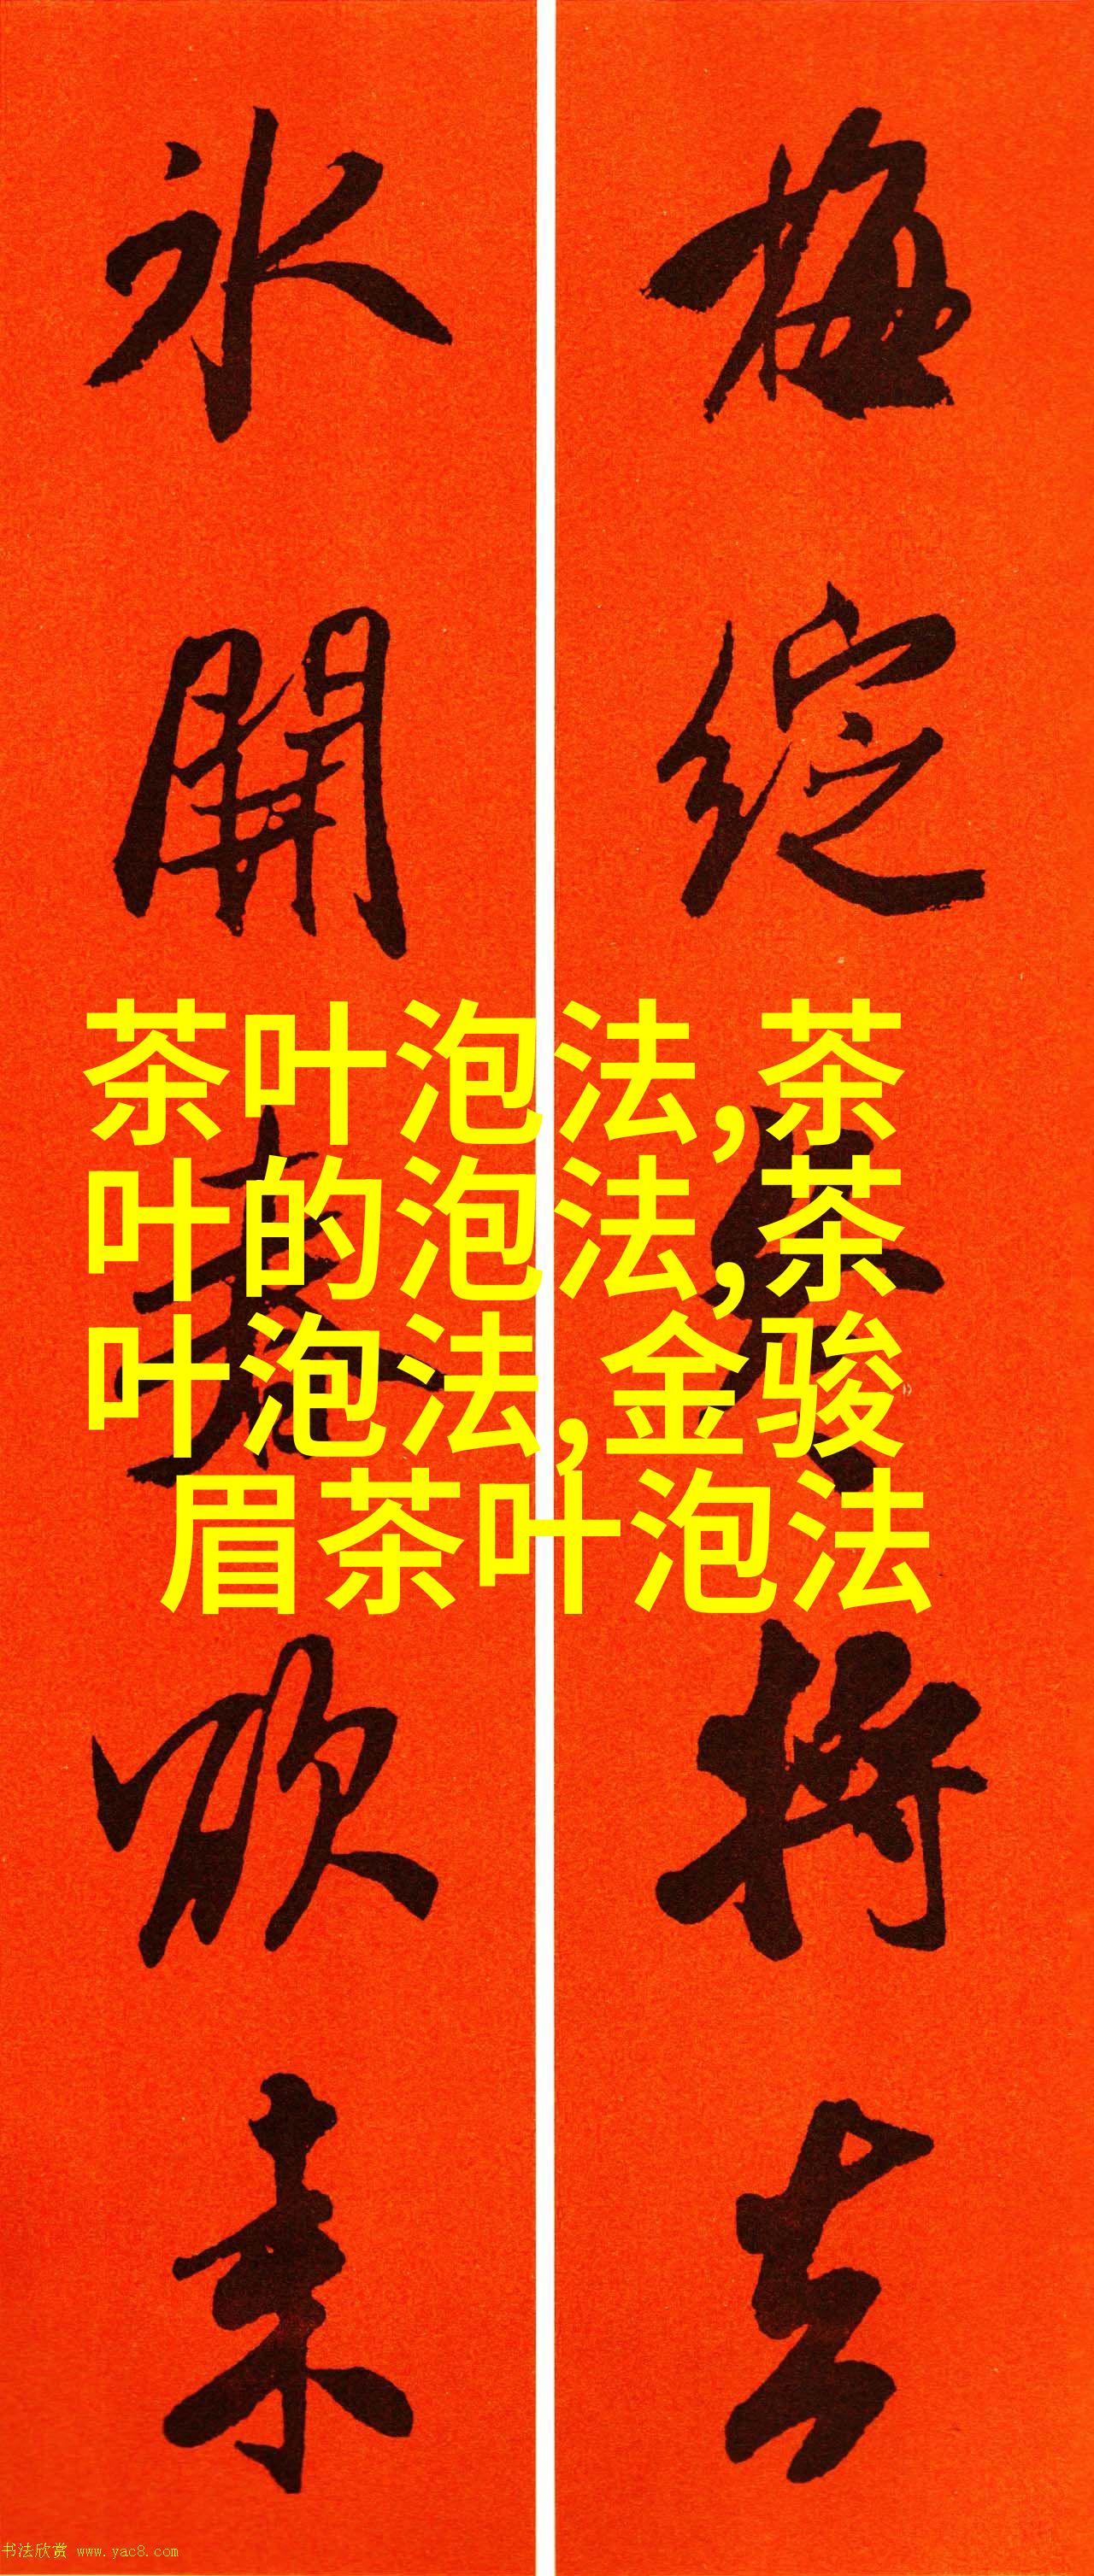 梅綻冬將去
冰開春欣来
茶叶泡法,茶
叶的泡法,茶
叶泡法,金骏
眉茶叶泡法
书法欣赏 www.yac8.com